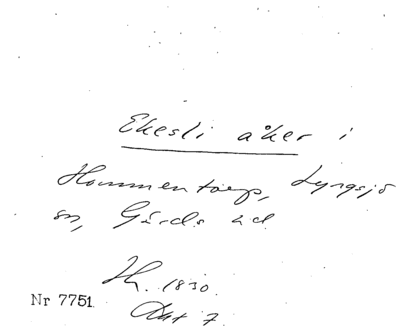 Ekesli åker i
Hommentorp, Lyngsjö
sn, Gärds hd
Hz. 1830.
Akt 7.
Nr 7751